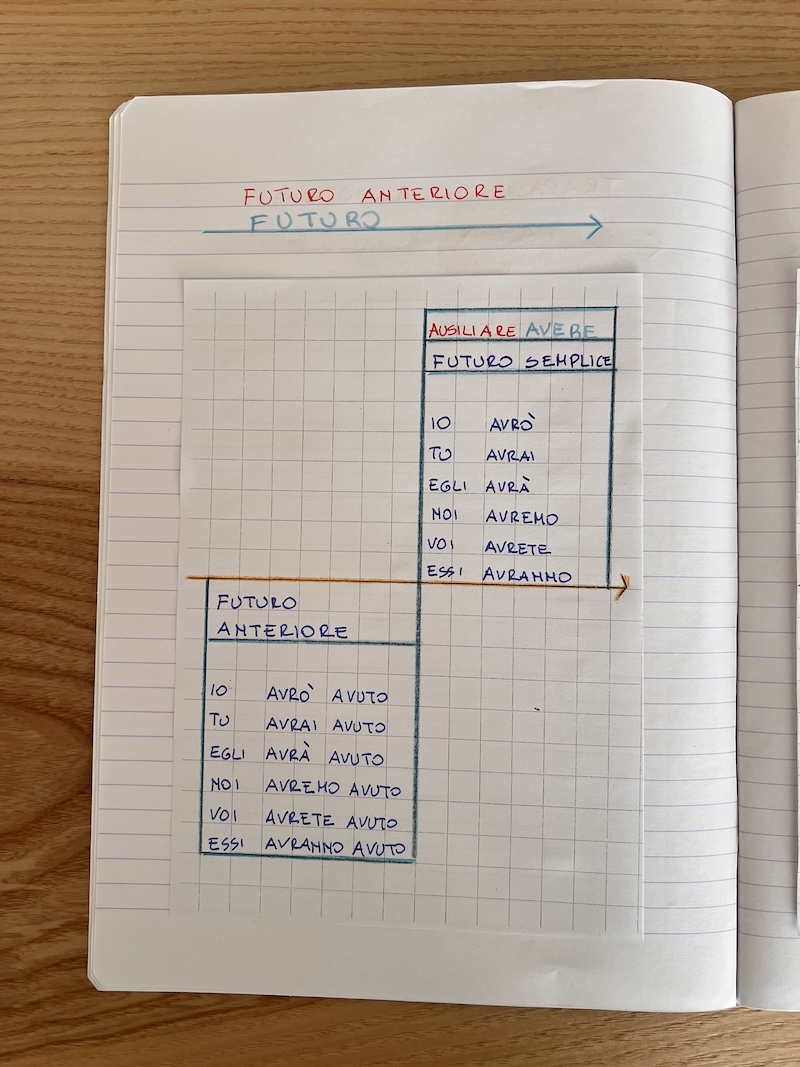 FUTURO ANTERIORE
FUTURO
AUSILIARE AVERE
FUTURO SEMPLICE
IO AVRÒ
TU AVRAI
EGLI AVRÀ
NOI AVREMO
VOI AVRETE
ESSI AVRANNO
FUTURO
ANTERIORE
IO AVRÒ AVUTO
TU AVRAI AVUTO
EGLI AVRÀ AVUTO
NOI AVREMO AVUTO
VOI AVRETE AVUTO
ESSI AVRANNO AVUTO